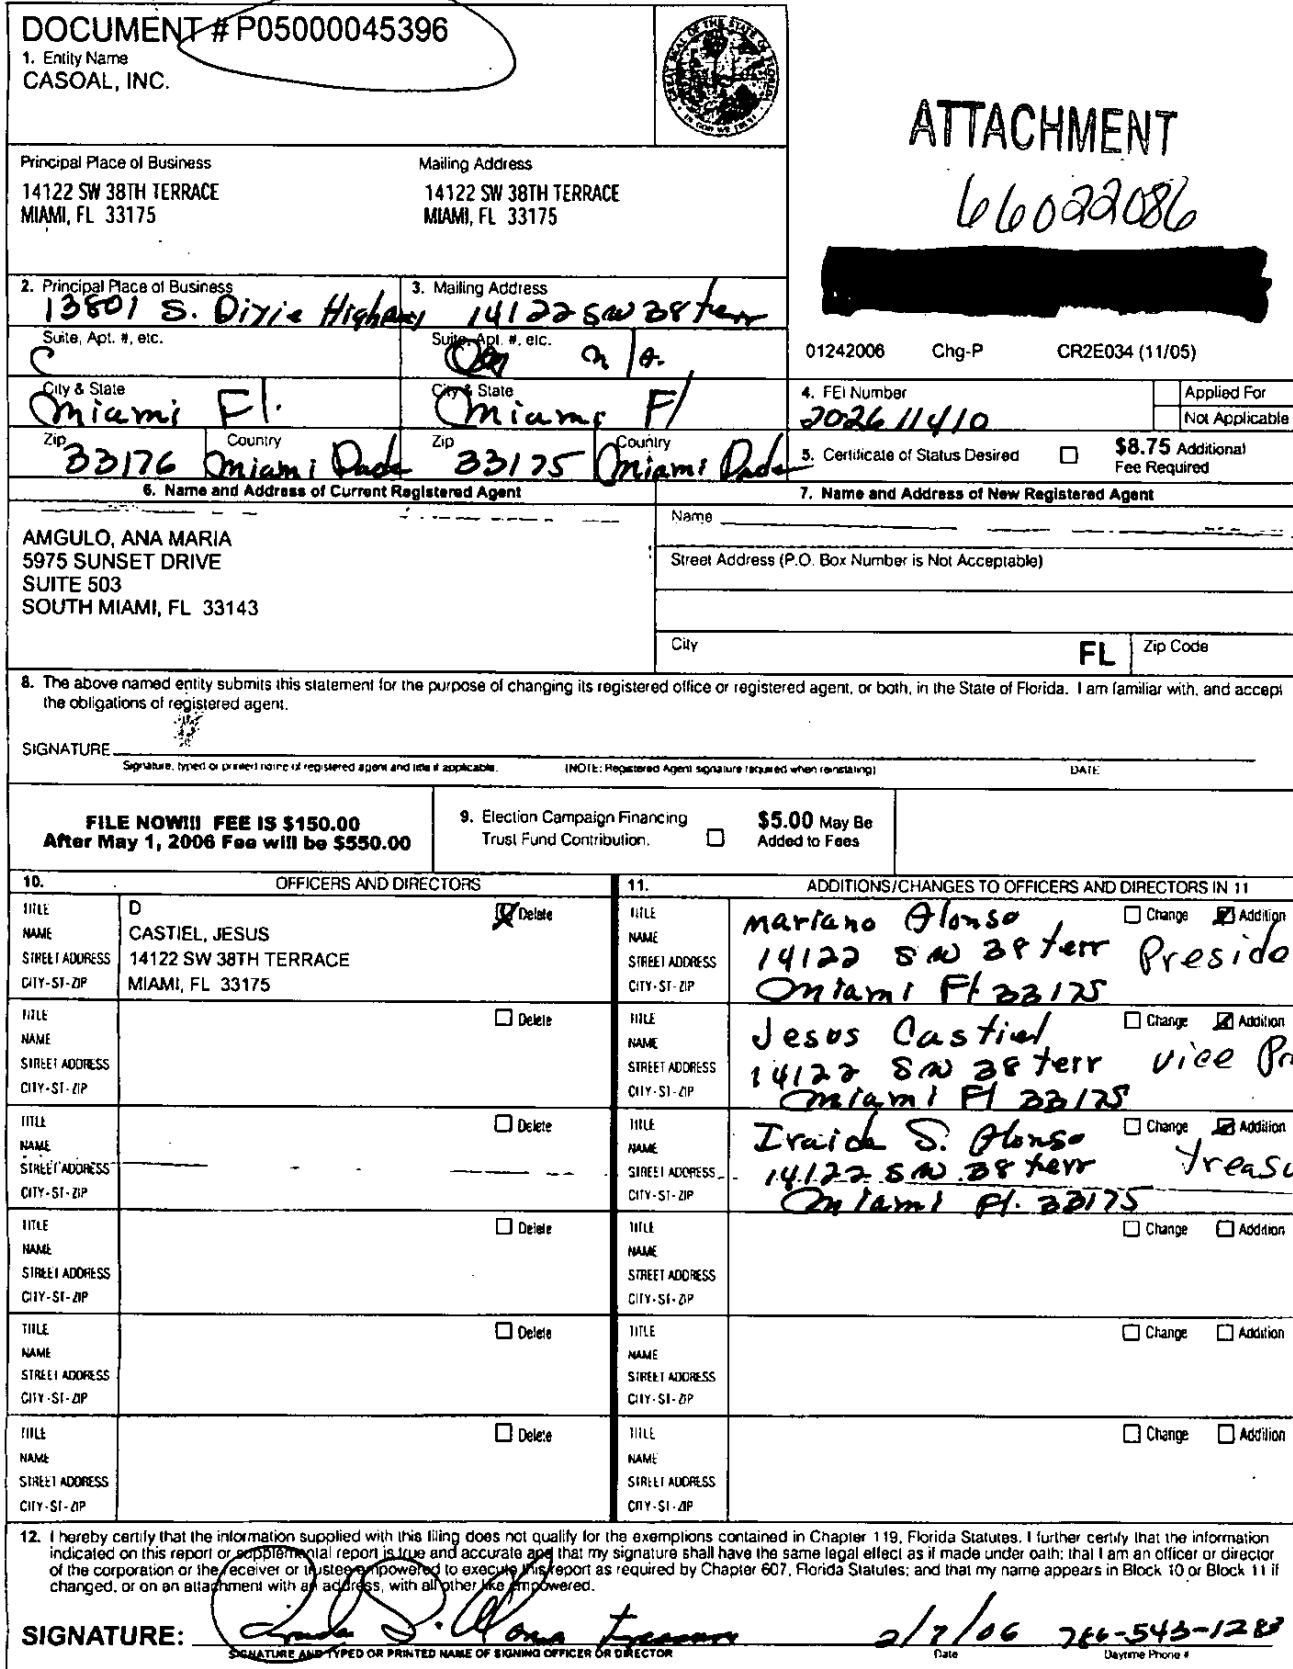 DOCUMENT # P05000045396
1. Entity Name
CASOAL, INC.
ATTACHMENT
66022086
Principal Place of Business
14122 SW 38TH TERRACE
MIAMI, FL 33175
Mailing Address
14122 SW 38TH TERRACE
MIAMI, FL 33175
2. Principal Place of Business
13801 S. Dixie Highway
3. Mailing Address
14122 SW 38 terr
Suite, Apt. #, etc.
C
Suite, Apt. #, etc.
n/a.
01242006 Chg-P CR2E034 (11/05)
City & State
Miami Fl.
City & State
Miami Fl
4. FEI Number
202611410
Applied For
Not Applicable
Zip
33176
Country
Miami Dade
Zip
33175
Country
Miami Dade
5. Certificate of Status Desired
$8.75 Additional
Fee Required
6. Name and Address of Current Registered Agent
AMGULO, ANA MARIA
5975 SUNSET DRIVE
SUITE 503
SOUTH MIAMI, FL 33143
7. Name and Address of New Registered Agent
Name
Street Address (P.O. Box Number is Not Acceptable)
City FL Zip Code
8. The above named entity submits this statement for the purpose of changing its registered office or registered agent, or both, in the State of Florida. I am familiar with, and accept
the obligations of registered agent.
SIGNATURE
Signature, typed or printed name of registered agent and title if applicable. (NOTE: Registered Agent signature required when reinstating) DATE
FILE NOW!!! FEE IS $150.00
After May 1, 2006 Fee will be $550.00
9. Election Campaign Financing
Trust Fund Contribution.
$5.00 May Be
Added to Fees
10. OFFICERS AND DIRECTORS
TITLE D Delete
NAME CASTIEL, JESUS
STREET ADDRESS 14122 SW 38TH TERRACE
CITY-ST-ZIP MIAMI, FL 33175
TITLE Delete
NAME
STREET ADDRESS
CITY-ST-ZIP
TITLE Delete
NAME
STREET ADDRESS
CITY-ST-ZIP
TITLE Delete
NAME
STREET ADDRESS
CITY-ST-ZIP
TITLE Delete
NAME
STREET ADDRESS
CITY-ST-ZIP
TITLE Delete
NAME
STREET ADDRESS
CITY-ST-ZIP
11. ADDITIONS/CHANGES TO OFFICERS AND DIRECTORS IN 11
TITLE Mariano Alonso Change Addition
NAME
STREET ADDRESS 14122 SW 38 terr Preside
CITY-ST-ZIP Miami Fl 33175
TITLE Jesus Castiel Change Addition
NAME
STREET ADDRESS 14122 SW 38 terr vice Pr
CITY-ST-ZIP Miami Fl 33175
TITLE Iraida S. Alonso Change Addition
NAME
STREET ADDRESS 14122 SW 38 terr Treasu
CITY-ST-ZIP Miami Fl. 33175
TITLE Change Addition
NAME
STREET ADDRESS
CITY-ST-ZIP
TITLE Change Addition
NAME
STREET ADDRESS
CITY-ST-ZIP
TITLE Change Addition
NAME
STREET ADDRESS
CITY-ST-ZIP
12. I hereby certify that the information supplied with this filing does not qualify for the exemptions contained in Chapter 119, Florida Statutes. I further certify that the information
indicated on this report or supplemental report is true and accurate and that my signature shall have the same legal effect as if made under oath; that I am an officer or director
of the corporation or the receiver or trustee empowered to execute this report as required by Chapter 607, Florida Statutes; and that my name appears in Block 10 or Block 11 if
changed, or on an attachment with an address, with all other like empowered.
SIGNATURE: Iraida S. Alonso Treasurer 2/7/06 786-543-1283
SIGNATURE AND TYPED OR PRINTED NAME OF SIGNING OFFICER OR DIRECTOR Date Daytime Phone #